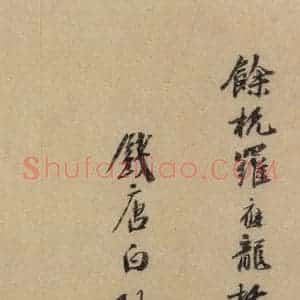 餘杭羅應龍
錢唐白
ShufaMiao.com